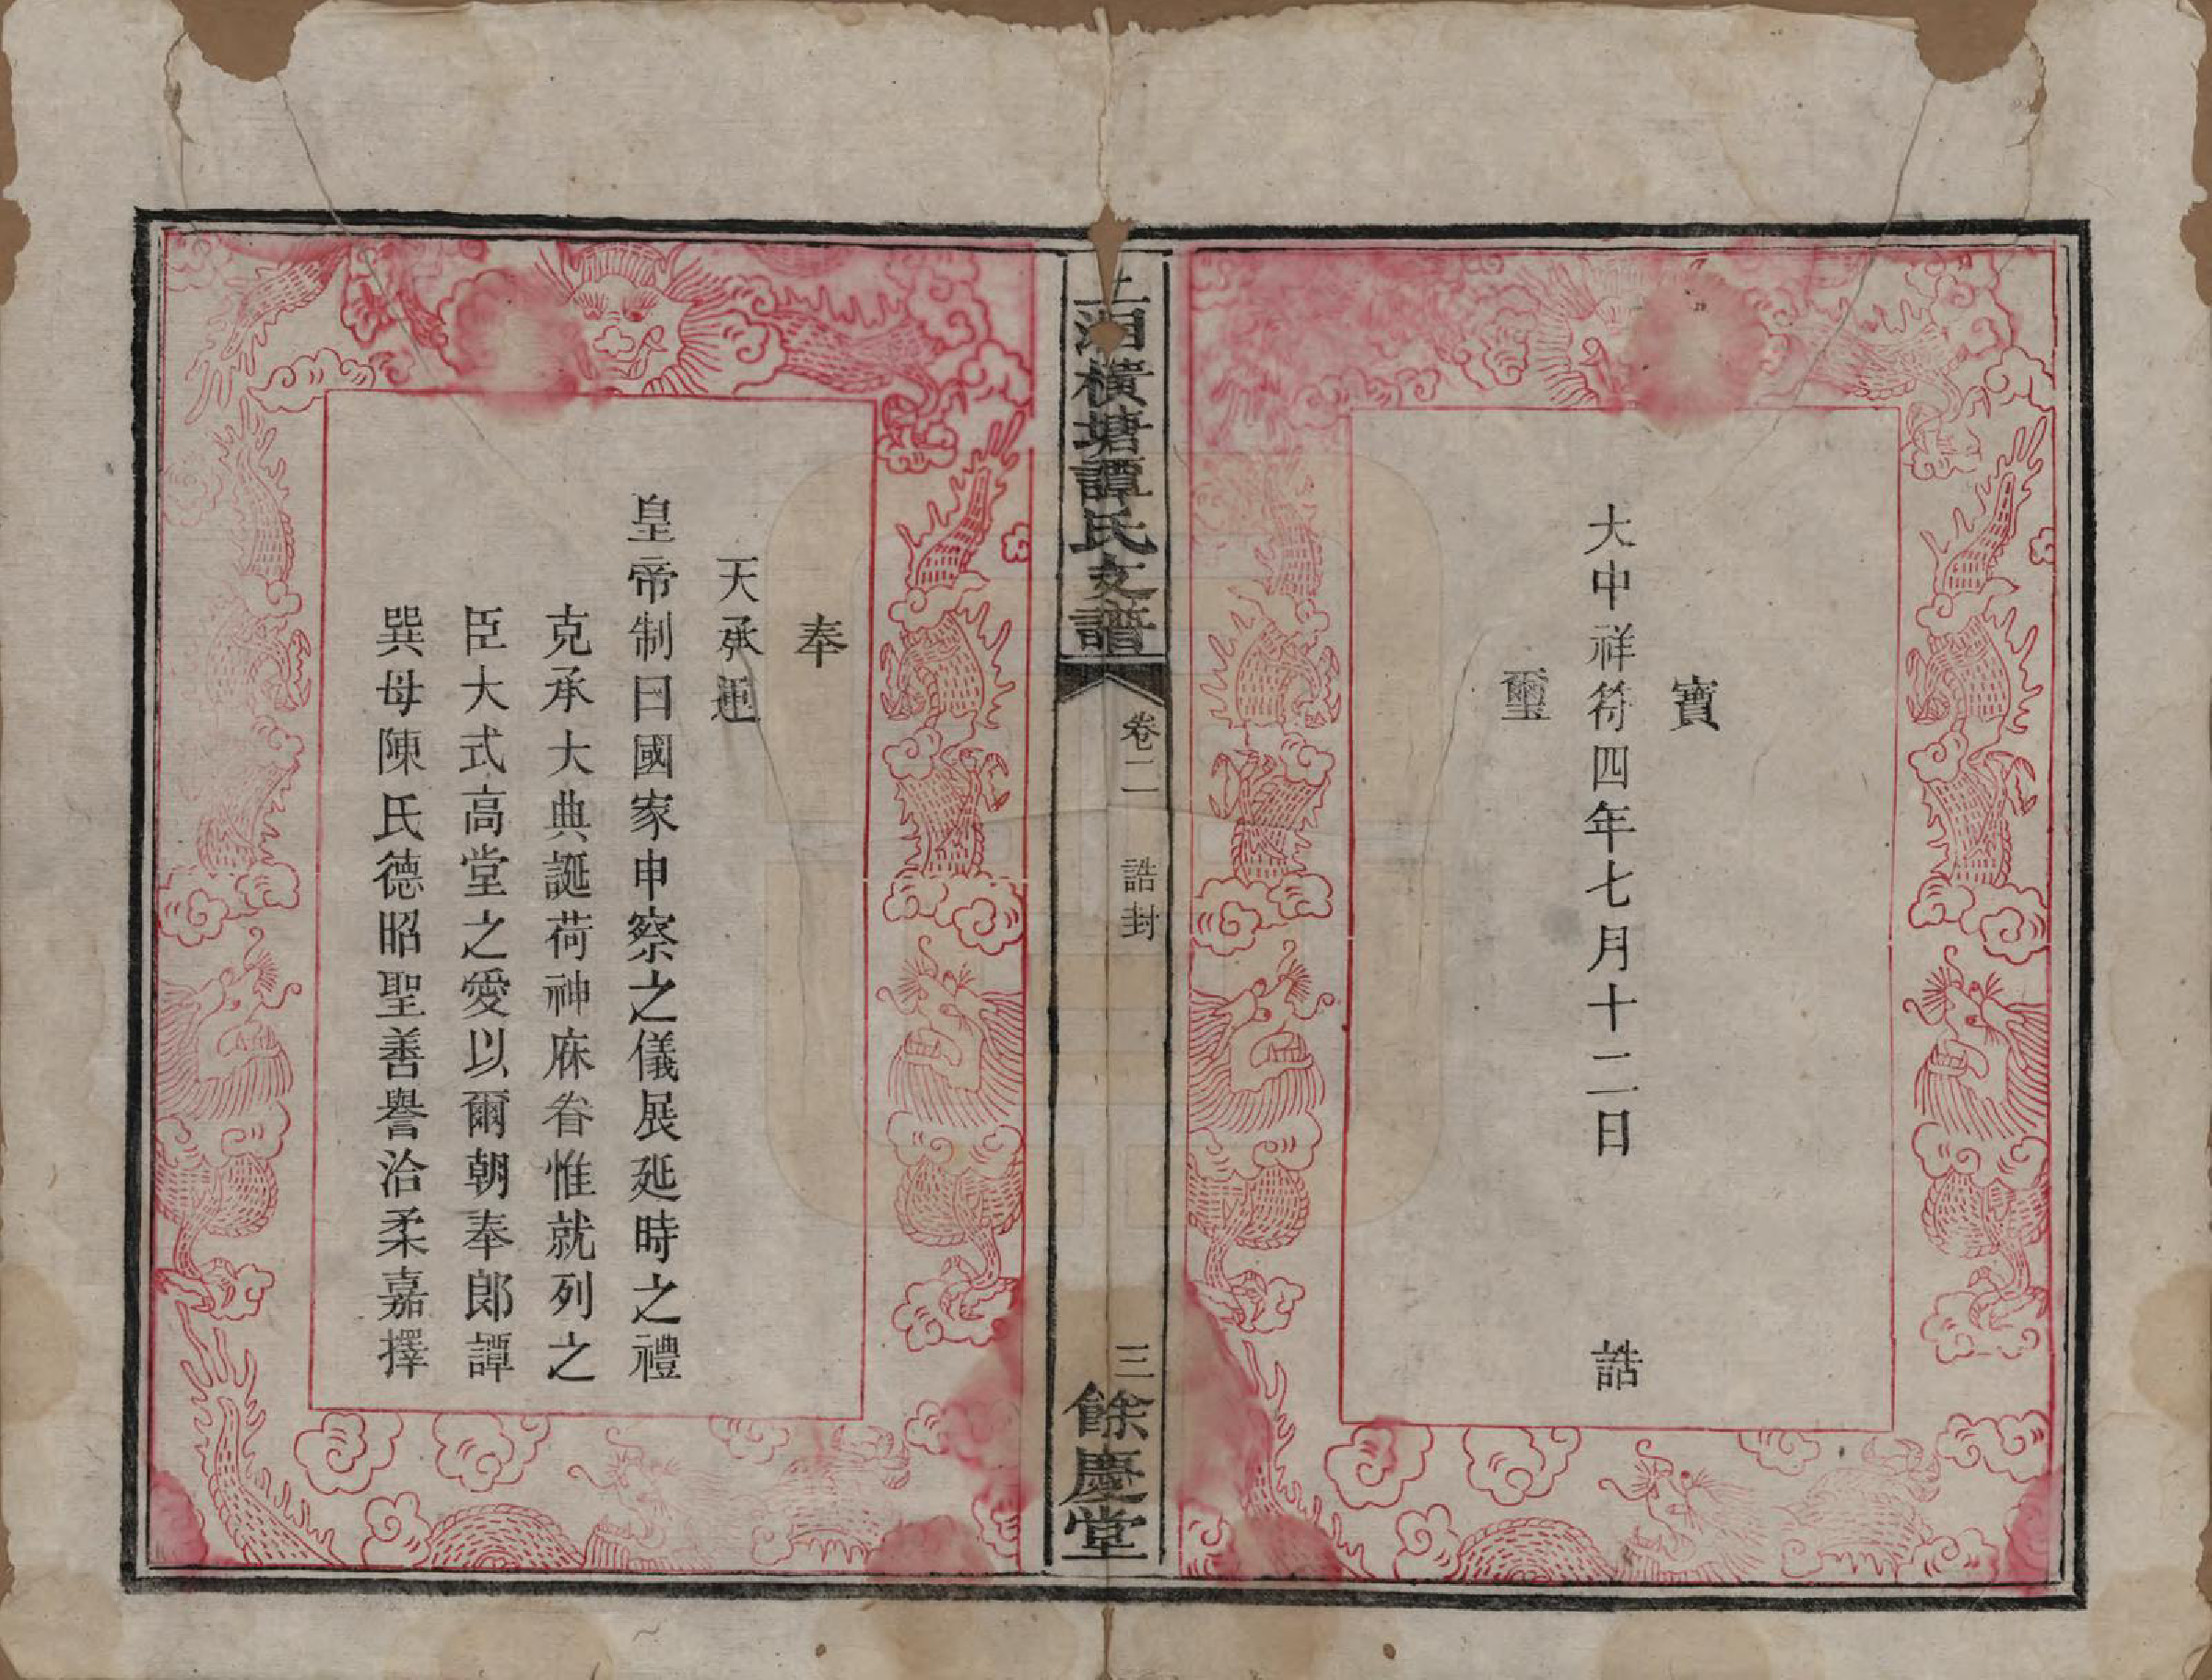 寶
大中祥符四年七月十二日 誥
璽
上湘橫塘譚氏支譜
卷二 誥封
三
餘慶堂
奉
天承運
皇帝制曰國家申察之儀展延時之禮
克承大典誕荷神庥眷惟就列之
臣大式高堂之愛以爾朝奉郎譚
巽母陳氏德昭聖善譽洽柔嘉擇